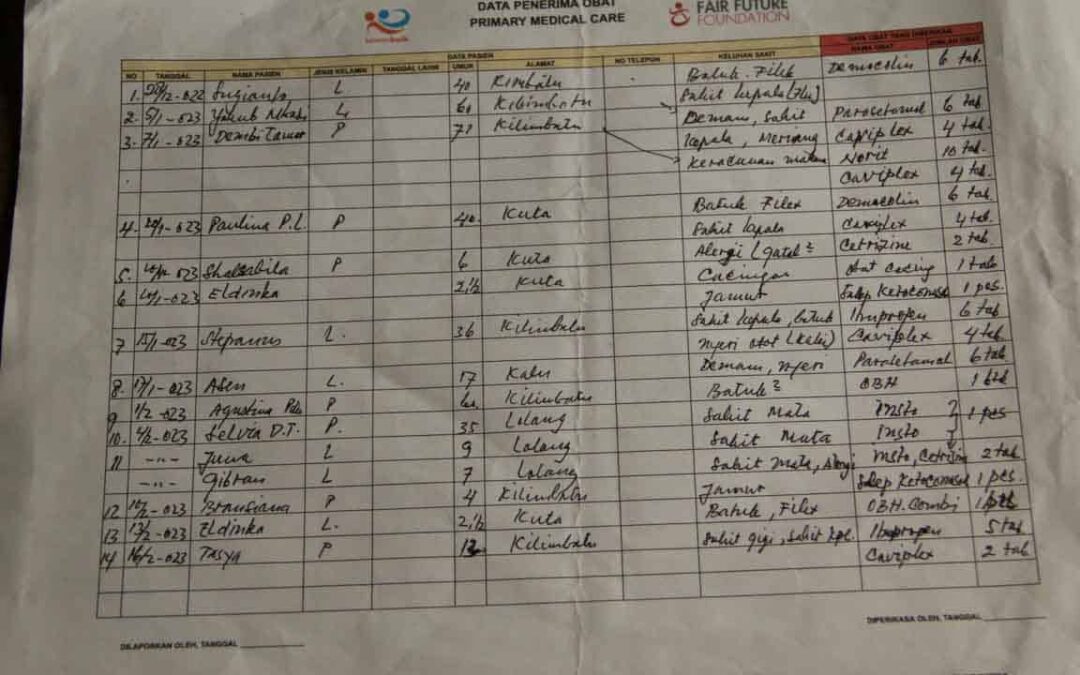 DATA PENERIMA OBAT
PRIMARY MEDICAL CARE
FAIR FUTURE
FOUNDATION
DATA PASIEN DATA OBAT YANG DIBERIKAN
NO TANGGAL NAMA PASIEN JENIS KELAMIN TANGGAL LAHIR UMUR ALAMAT NO TELEPON KELUHAN SAKIT NAMA OBAT JUMLAH OBAT
1. L 40 Kimbatu Batuk. Filek Democolin 6 tab.
2. 5/1-023 L 60 Kilimbatu Sakit kepala (Flu)
3. 7/1-023 P 71 Kilimbatu Demam, Sakit Parasetamol 6 tab
kepala, Meriang Caviplex 4 tab.
Keracunan Norit 10 tab.
Caviplex 4 tab.
Batuk Filex Democolin 6 tab
4. Paulina P.L. P 40. Kuta Sakit kepala Caviplex 4 tab.
Alergi (gatal² Cetrizine 2 tab.
5. Shalsabila P 6 Kuta Cacingan obat cacing 1 tab
6 Eldinka 2,½ Kuta Jamur Salep Ketoconasol 1 pcs.
Sakit kepala, batuk Ibuprofen 6 tab
7 15/1-023 Stepanus L. 36 Kilimbatu nyeri otot Caviplex 4 tab.
Demam, nyeri Parasetamol 6 tab
8. 17/1-023 Asen L. 17 Batuk² OBH 1 btl
9 1/2-023 Agustina P Kilimbatu Sakit Mata Insto 1 pcs
10. 4/2-023 Selvia D.T. P. 35 Lolang Sakit Mata Insto
11 -"- Juwa L 9 Lolang Sakit Mata, Alergi Insto, Cetrizin 2 tab
-"- Gibran L 7 Lolang Jamur Salep Ketoconasol 1 pcs.
12 10/2-023 P 4 Kilimbatu Batuk, Filex OBH.Combi 1 btl
13 13/2-023 Eldinka L. 2,½ Kuta Sakit gigi, Sakit kpl. Ibuprofen 5 tab
14 16/2-023 Tasya P 12 Kilimbatu Caviplex 2 tab
DILAPORKAN OLEH, TANGGAL DIPERIKSA OLEH, TANGGAL